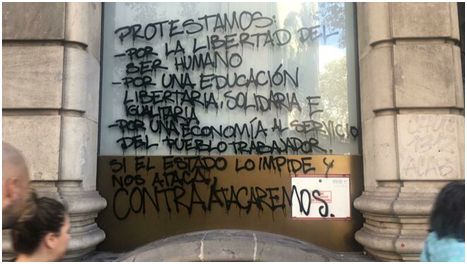 PROTESTAMOS:
-POR LA LIBERTAD DEL
SER HUMANO
-POR UNA EDUCACIÓN
LIBERTARIA, SOLIDARIA E
IGUALITARIA
-POR UNA ECONOMÍA AL SERVICIO
DEL PUEBLO TRABAJADOR.
SI EL ESTADO LO IMPIDE Y
NOS ATACA,
CONTRAATACAREMOS.